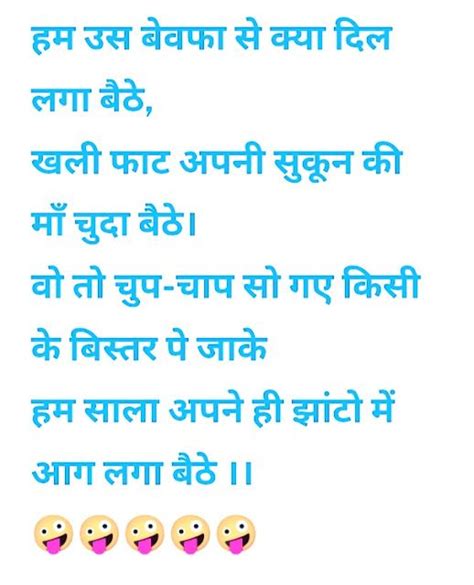 हम उस बेवफा से क्या दिल
लगा बैठे,
खली फाट अपनी सुकून की
माँ चुदा बैठे।
वो तो चुप-चाप सो गए किसी
के बिस्तर पे जाके
हम साला अपने ही झांटो में
आग लगा बैठे ।।
🤪🤪🤪🤪🤪